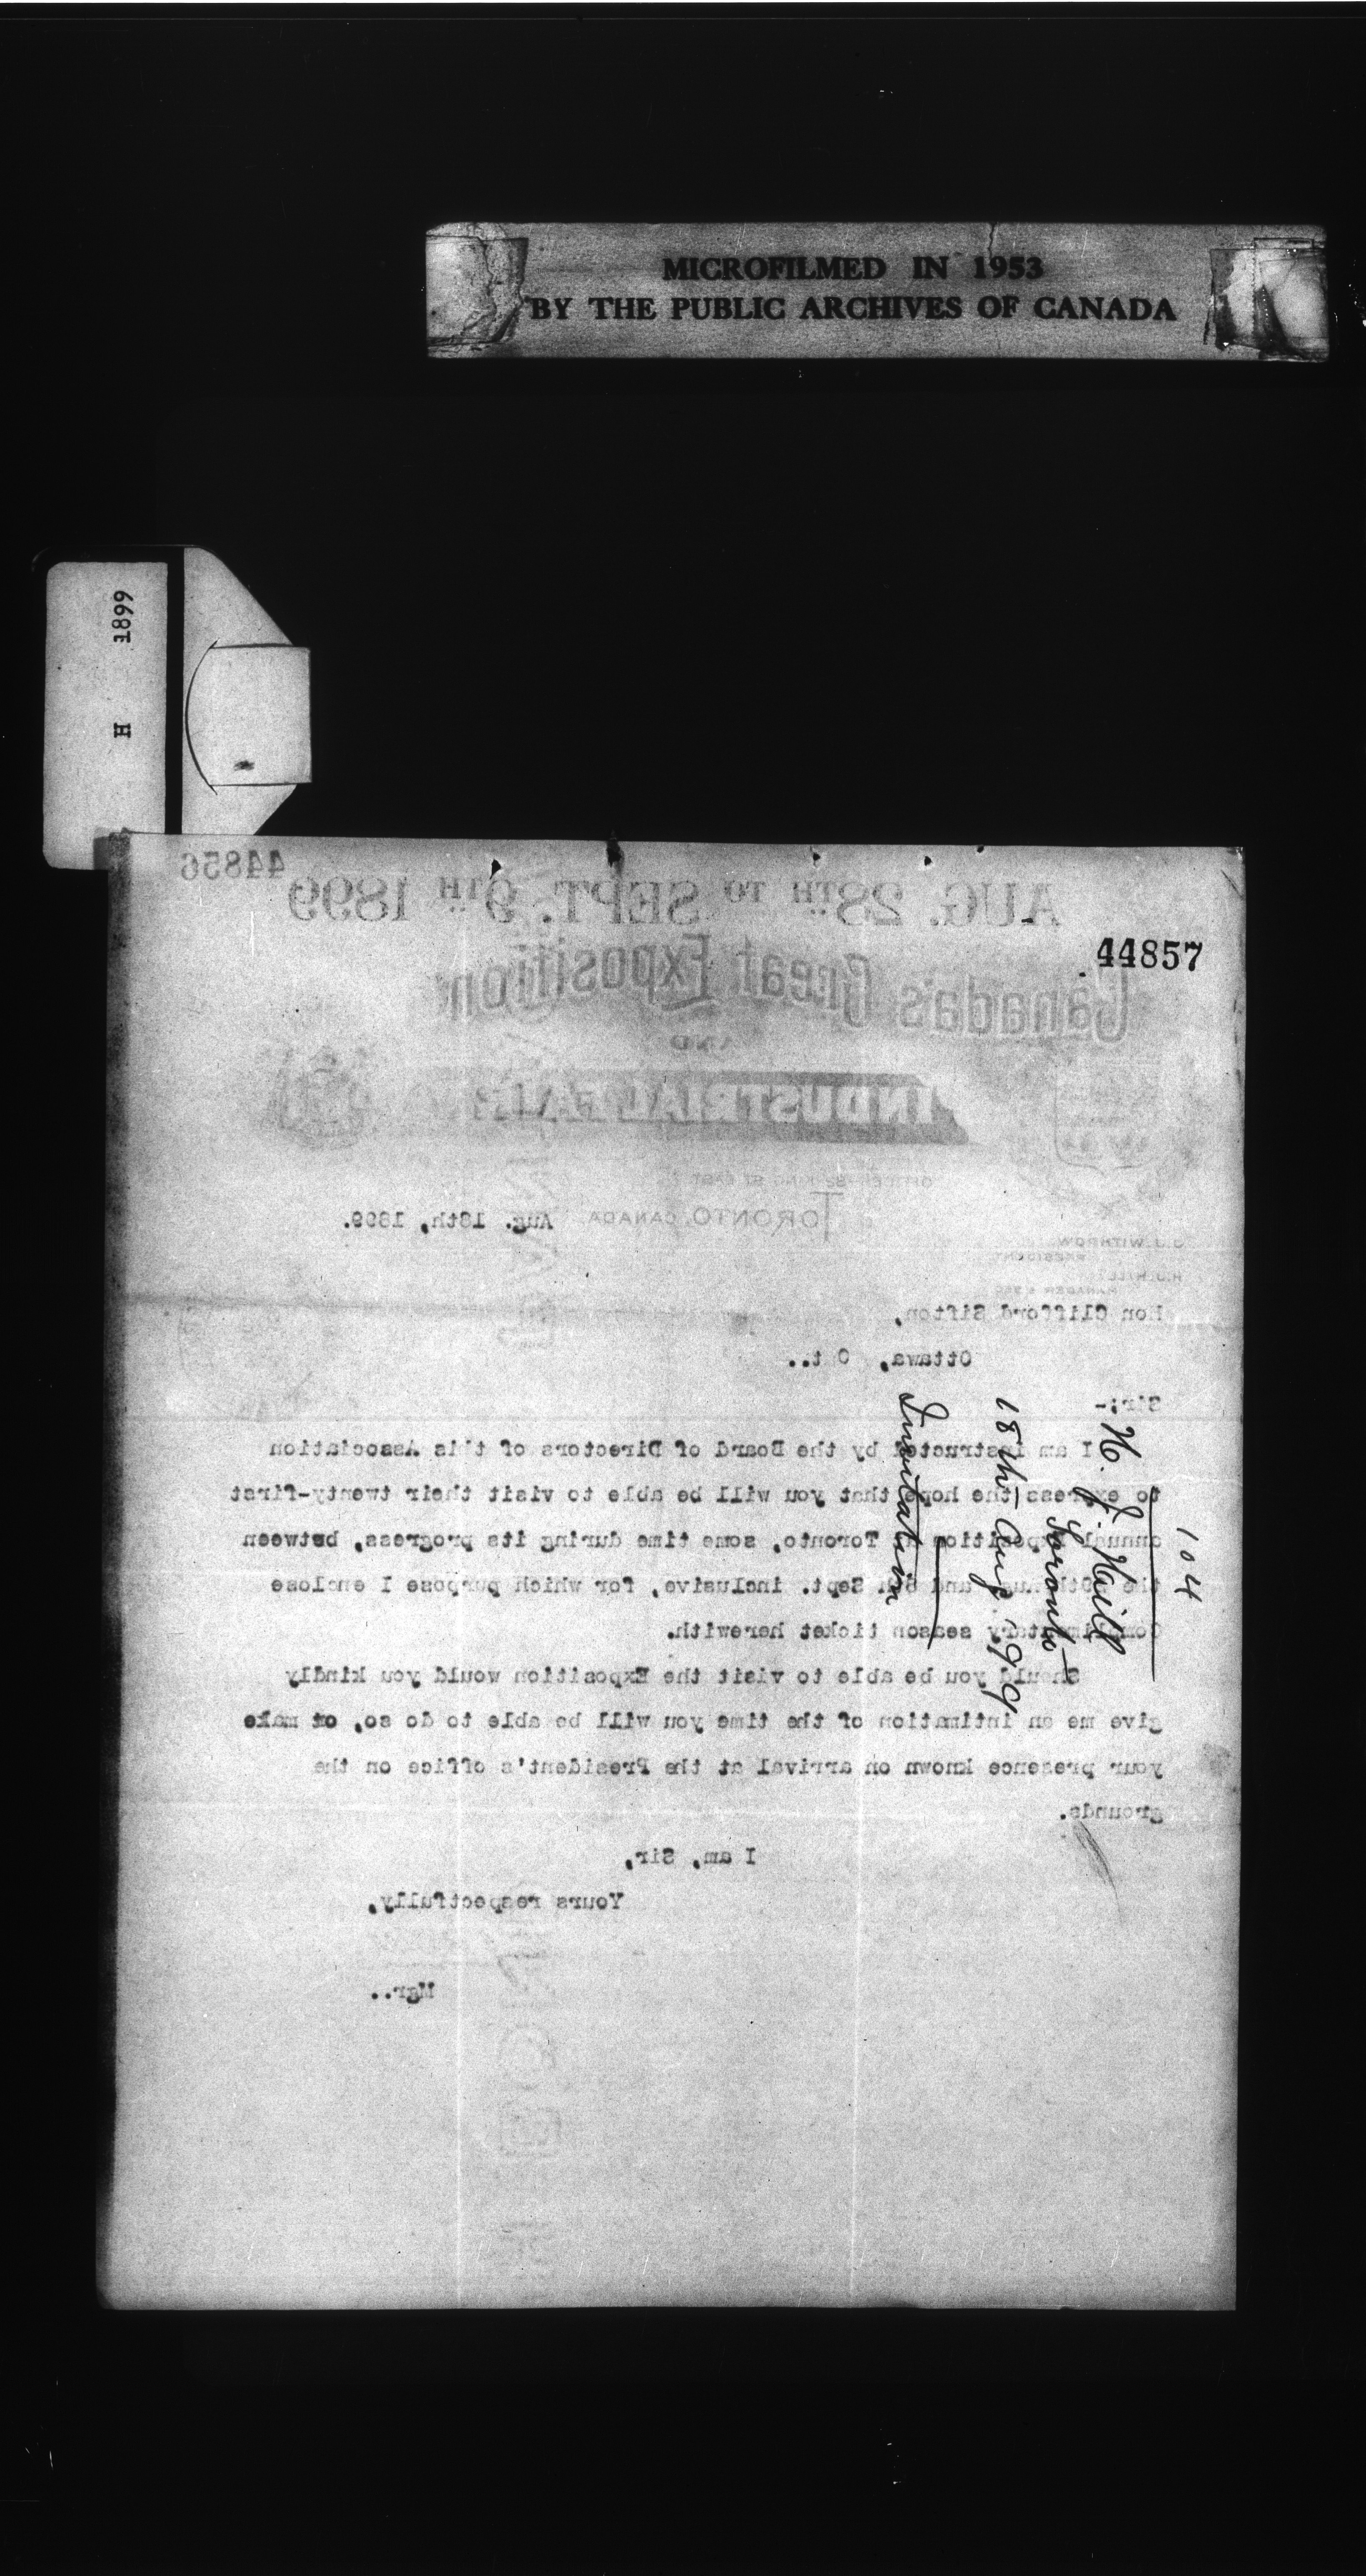 MICROFILMED IN 1953
BY THE PUBLIC ARCHIVES OF CANADA
H 1899
44856
AUG. 28TH TO SEPT. 9TH 1899
44857
Canada's Great Exposition
AND
INDUSTRIAL FAIR
OFFICE 82 KING ST EAST
TORONTO, CANADA. Aug. 18th, 1899.
J.J. WITHROW
PRESIDENT
H.J. HILL
MANAGER & SEC
Hon Clifford Sifton,
Ottawa, O t..
Sir;-
I am instructed by the Board of Directors of this Association
to express the hope that you will be able to visit their twenty-first
annual Exposition Toronto, some time during its progress, between
the Aug. and Sept. inclusive, for which purpose I enclose
Complimentary season ticket herewith.
Should you be able to visit the Exposition would you kindly
give me an intimation of the time you will be able to do so, or make
your presence known on arrival at the President's office on the
grounds.
I am, Sir,
Yours respectfully,
Mgr..
104
H. J. Hill
Toronto
18th Aug. '99
Invitation